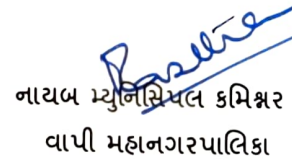 નાયબ મ્યુનિસિપલ કમિશ્નર
વાપી મહાનગરપાલિકા